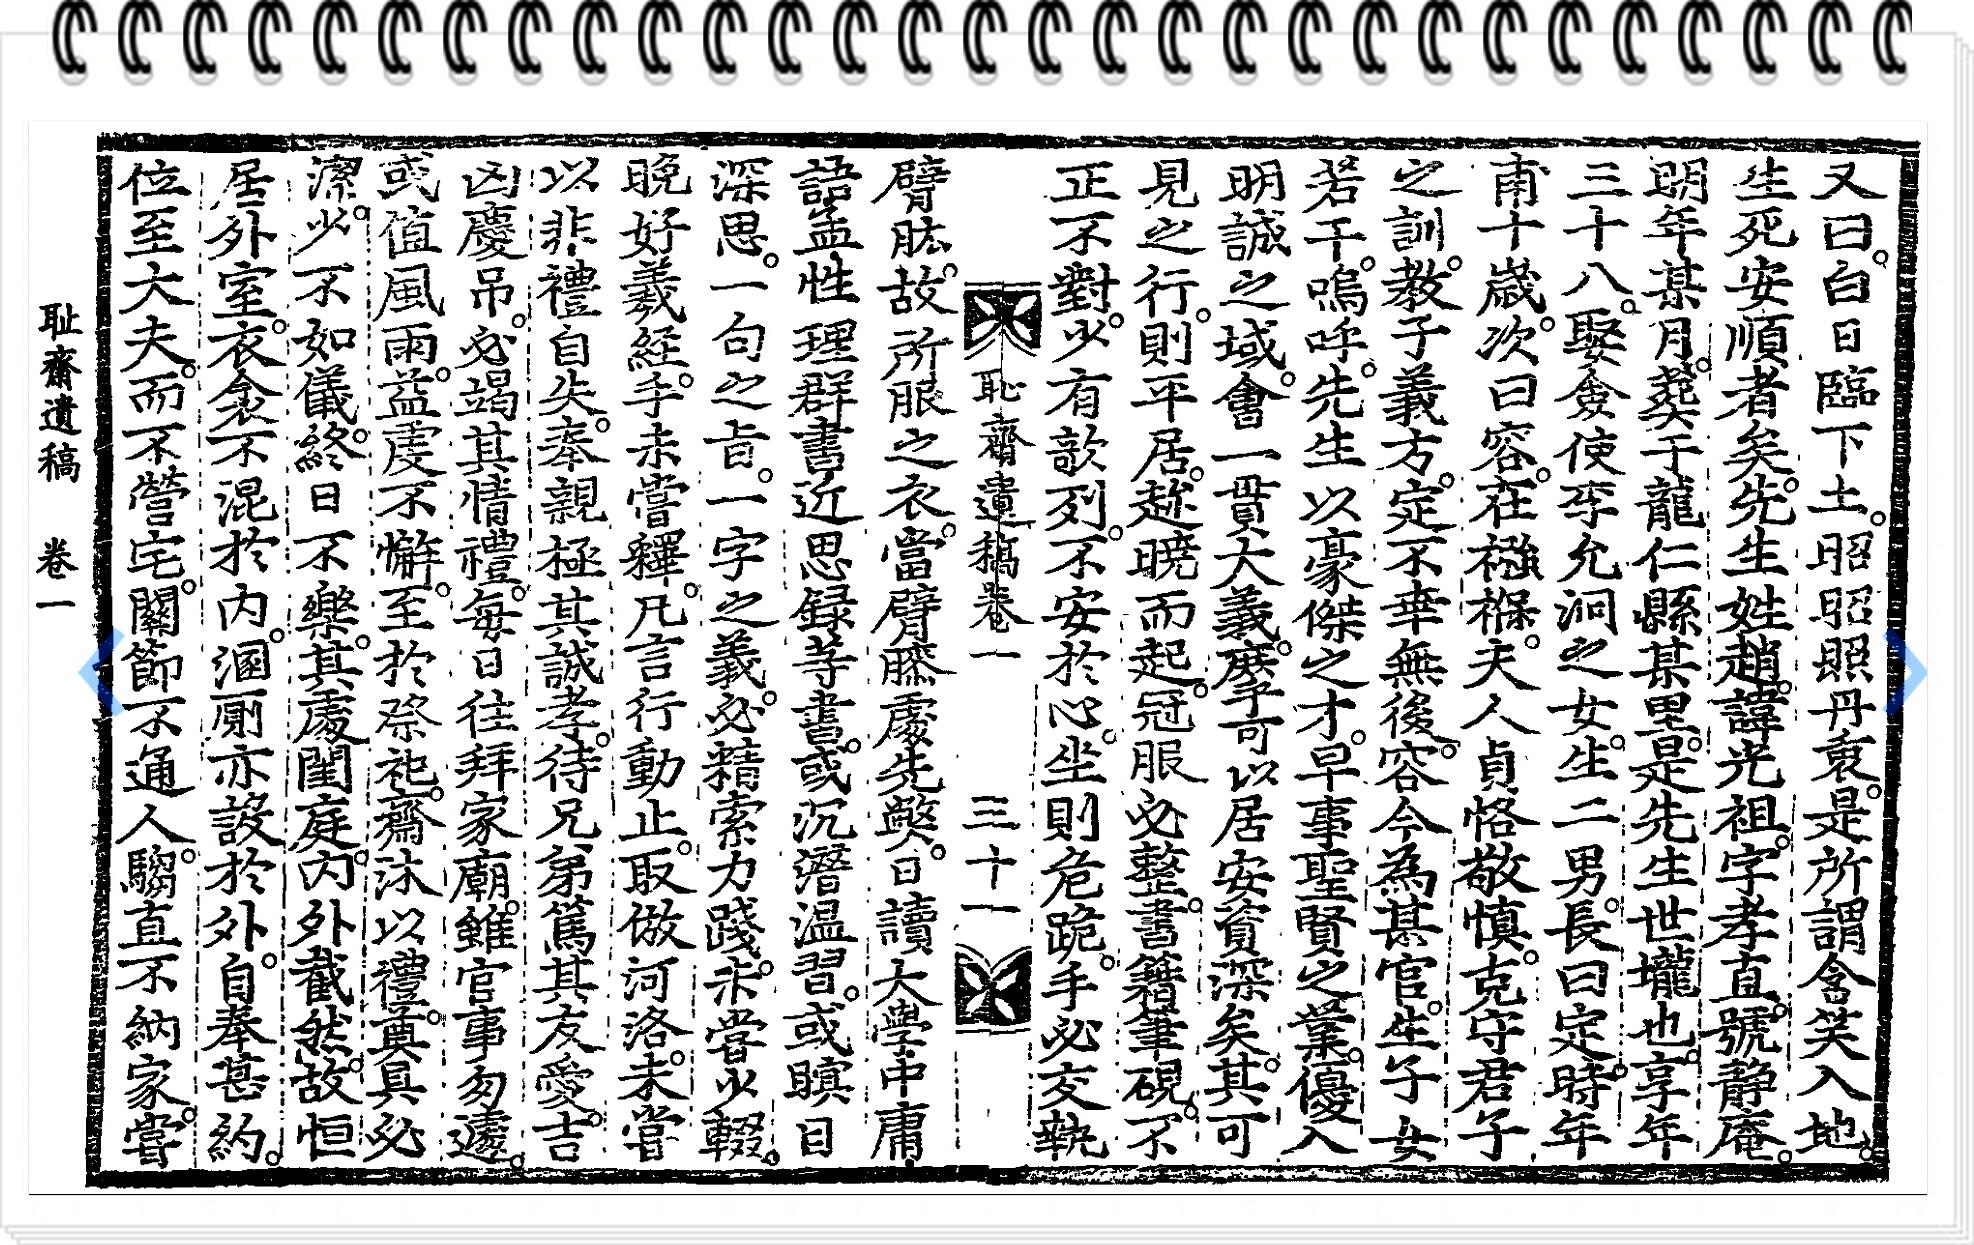 又曰白日臨下土昭昭照丹衷是所謂含笑入地
生死安順者矣先生姓趙諱光祖字孝直號静庵
明年某月葬于龍仁縣某里是先生世壠也享年
三十八娶僉使李允泂之女生二男長曰定時年
甫十歲次曰容在襁褓夫人貞恪敬慎克守君子
之訓教子義方定不幸無後容今為某官生子女
若干嗚呼先生以豪傑之才早事聖賢之業優入
明誠之域會一貫大義庶乎可以居安資深矣其可
見之行則平居趂曉而起冠服必整書籍筆硯不
正不對少有欹列不安於心坐則危跪手必交執
恥齋遺稿卷一 三十一
臂肱故所服之衣當臂膝處先獘日讀大學中庸
語孟性理群書近思錄等書或沉潛温習或瞑目
深思一句之旨一字之義必精索力踐未嘗少輟
晩好羲經手未嘗釋凡言行動止取倣河洛未嘗
以非禮自失奉親極其誠孝待兄弟篤其友愛吉
凶慶吊必竭其情禮每日往拜家廟雖官事匆遽
或值風雨益虔不懈至於祭祀齋沐以禮奠具必
潔少不如儀終日不樂其處閨庭內外截然故恒
居外室衣衾不混於內溷厠亦設於外自奉甚約
位至大夫而不營宅關節不通人騶直不納家嘗
耻齋遺稿 卷一